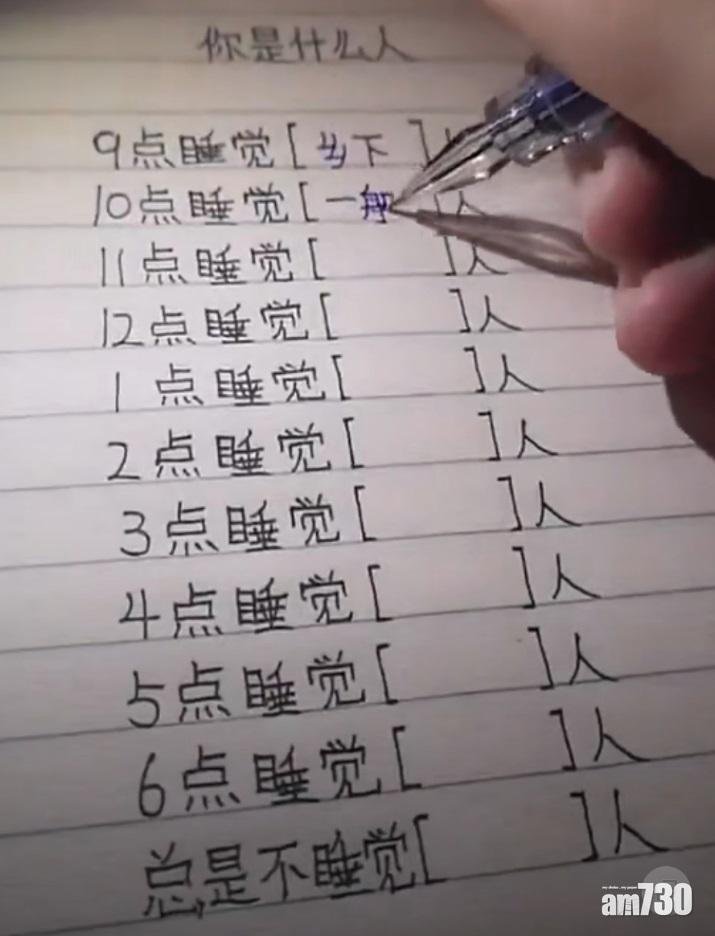 你是什么人
9点睡觉[乡下]人
10点睡觉[一般]人
11点睡觉[ ]人
12点睡觉[ ]人
1点睡觉[ ]人
2点睡觉[ ]人
3点睡觉[ ]人
4点睡觉[ ]人
5点睡觉[ ]人
6点睡觉[ ]人
总是不睡觉[ ]人
am730